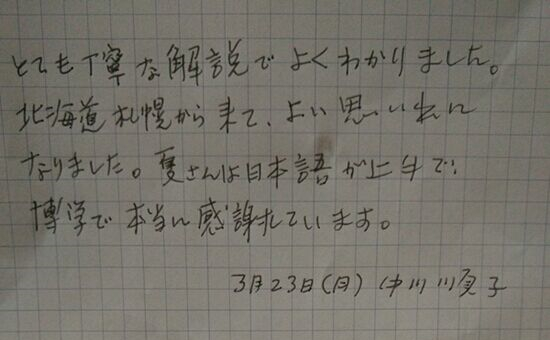 とても丁寧な解説でよくわかりました。
北海道札幌から来て、よい思いれに
なりました。夏さんは日本語が上手で、
博学で本当に感謝しています。
3月23日(月) 中川順子